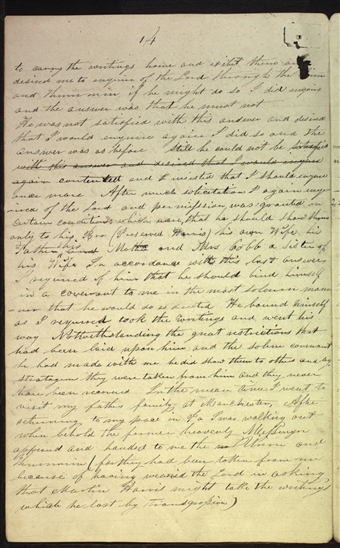 14
to carry the writings home and exhibit them and
desired me to enquire of the Lord through the Urim
and Thummim if he might do so I did enquire
and the answer was that he must not
He was not satisfied with this answer and desired
that I would enquire again I did so and the
answer was as before Still he could not be satisfied
with this answer and desired that I would enquire
again contented and insisted that I should enquire
once more After much solicitation I again enqu
ired of the Lord and permission was granted on
certain conditions which were, that he should show them
only to his Bro (Preserved Harris) his own Wife, his
Father, his Mother and Mrs Cobb a Sister of
his Wife In accordance with this last answer
I required of him that he should bind himself
in a covenant to me in the most solemn man
ner that he would do as directed He bound himself
as I required took the writings and went his
way Notwithstanding the great restrictions that
had been laid upon him and the solemn covenant
he had made with me he did show them to others and by
stratagem they were taken from him and they never
have been recovered In the mean time I went to
visit my fathers family, at Manchester, After
returning to my place in Pa I was walking out
when behold the former heavenly Messenger
appeared and handed to me the Urim and
Thummim (for they had been taken from me
because of having wearied the Lord in asking
that Martin Harris might take the writings
which he lost by transgression)